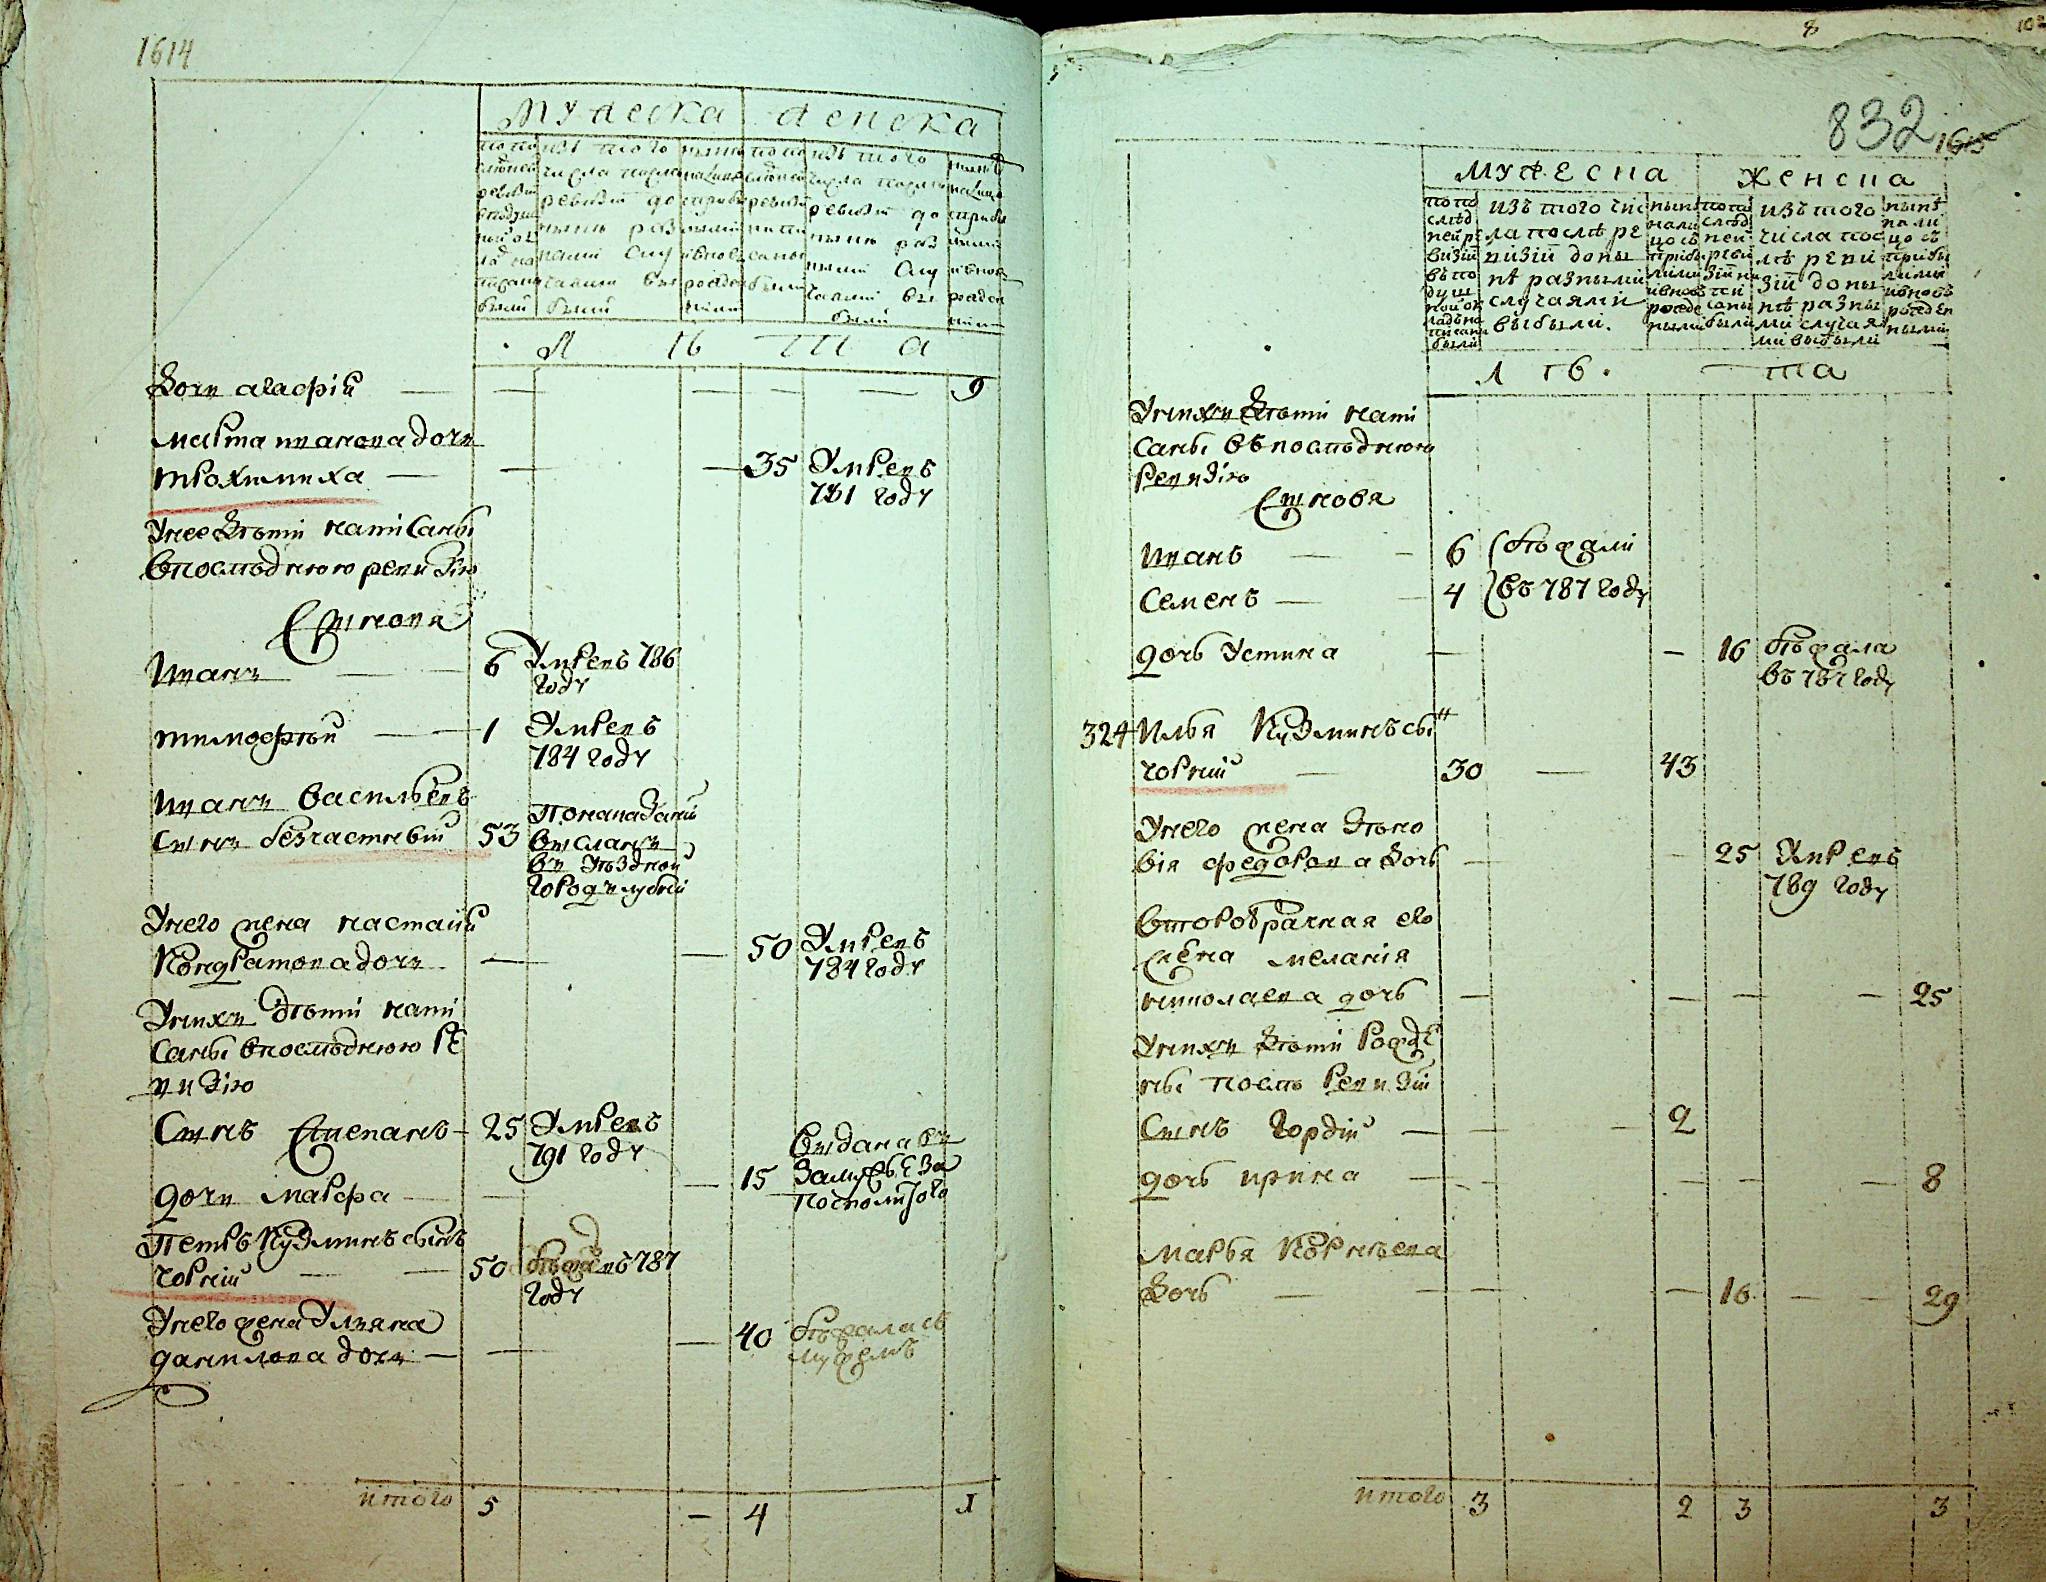 1614
мужеска женска
по по
слѣдней
ревизіи
въ подуш
ной ок
ладъ на
писаны
были
изъ того
числа послѣ
ревизіи до
нынѣ раз
ными слу
чаями вы
были
нынѣ
налицо
съ прибы
лыми
и вновь
рожден
ными
по по
слѣдней
ревизіи
на пи
саны
были
изъ того
числа послѣ
ревизіи до
нынѣ раз
ными слу
чаями вы
были
нынѣ
налицо
съ прибы
лыми
и вновь
рожден
ными
л ѣ т а
дочъ агафія — — — — — 9
марта иванова дочъ
трохимиха — — — 35 Умреръ
781 году
У нее дѣти написаны
в послѣднюю ревизію
Сыновя
Иванъ — — 6 Умреръ 786
году
тимофѣй — — 1 Умреръ
784 году
иванъ васильевъ
сынъ безчастный 53 По наказаніи
высланъ
въ уѣздной
городъ
У него жена настасия
Кондратова дочъ — — 50 Умреръ
784 году
У нихъ дѣти напи
саны в послѣднюю ре
визію
Сынъ Степанъ — 25 Умреръ
791 году
дочъ марфа — — — 15 выдана въ
замужъе за
посполитого
Петръ Кузминъ сынъ
чорній — — 50 бѣжалъ 787
году
У него жена Уляна
данилова дочъ — — — 40 бѣжала съ
мужемъ
итого 5 — 4 1
8
832
1615
мужеска женска
по по
слѣд
ней ре
визіи
въ по
душ
ной ок
ладъ на
писаны
были
изъ того чис
ла послѣ ре
визіи до ны
нѣ разными
случаями
выбыли.
нынѣ
нали
цо съ
прибы
лыми
и вновь
рожде
ными
по по
слѣд
ней
реви
зіи на
пи
саны
были
изъ того
числа пос
лѣ реви
зіи до ны
нѣ разны
ми случая
ми выбыли
нынѣ
нали
цо съ
прибы
лыми
и вновь
рожден
ными
л ѣ т а
У нихъ дѣти напи
саны въ послѣднюю
ревизію
Сыновя
иванъ — — 6 бѣжали
семенъ — — 4 въ 787 году
дочь Устина — — 16 бѣжала
въ 787 году
324 Илья Кузминъ сы"
чорній — 30 — 43
У него жена Зѣно
вія федорова дочь — — 25 Умреръ
789 году
второбрачная его
жена меланія
николаева дочь — — — — 25
У нихъ дѣти рожде
ны послѣ ревизіи
Сынъ гордій — — — 2
дочь ирина — — — — — 8
марья Корнѣева
дочь — — — — 16 — — 29
итого 3 2 3 3